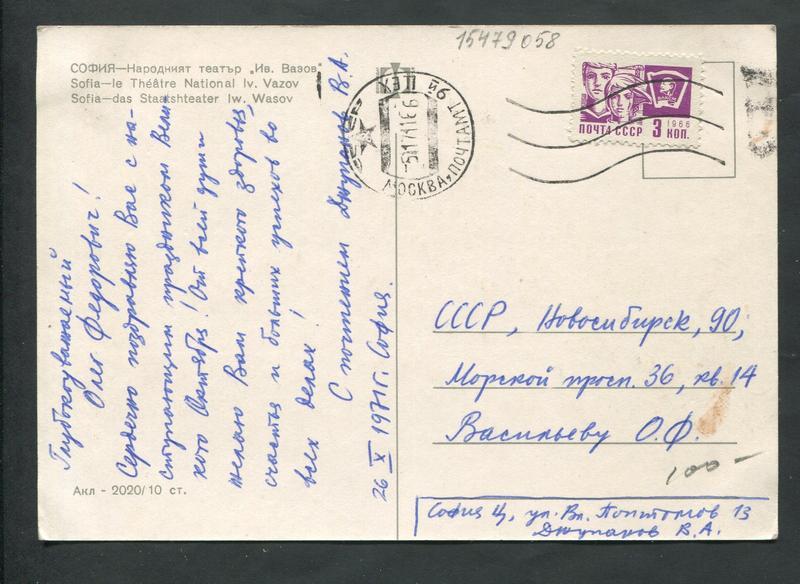 15479058
СОФИЯ—Народният театър „Ив. Вазов“
Sofia—le Théâtre National Iv. Vazov
Sofia—das Staatshteater Iw. Wasov
Глубокоуважаемый
Олег Федорович!
Сердечно поздравляю Вас с на-
ступающим праздником Вели-
кого Октября! От всей души
желаю Вам крепкого здоровья,
счастья и больших успехов во
всех делах!
С почтением Джупанов В.А.
26 X 1971г. София.
Акл - 2020/10 ст.
МОСКВА, ПОЧТАМТ
ПОЧТА СССР 3 КОП.
1966
СССР, Новосибирск, 90,
Морской просп. 36, кв. 14
Васильеву О.Ф.
100-
София Ц, ул. Вл. 13
Джупанов В.А.